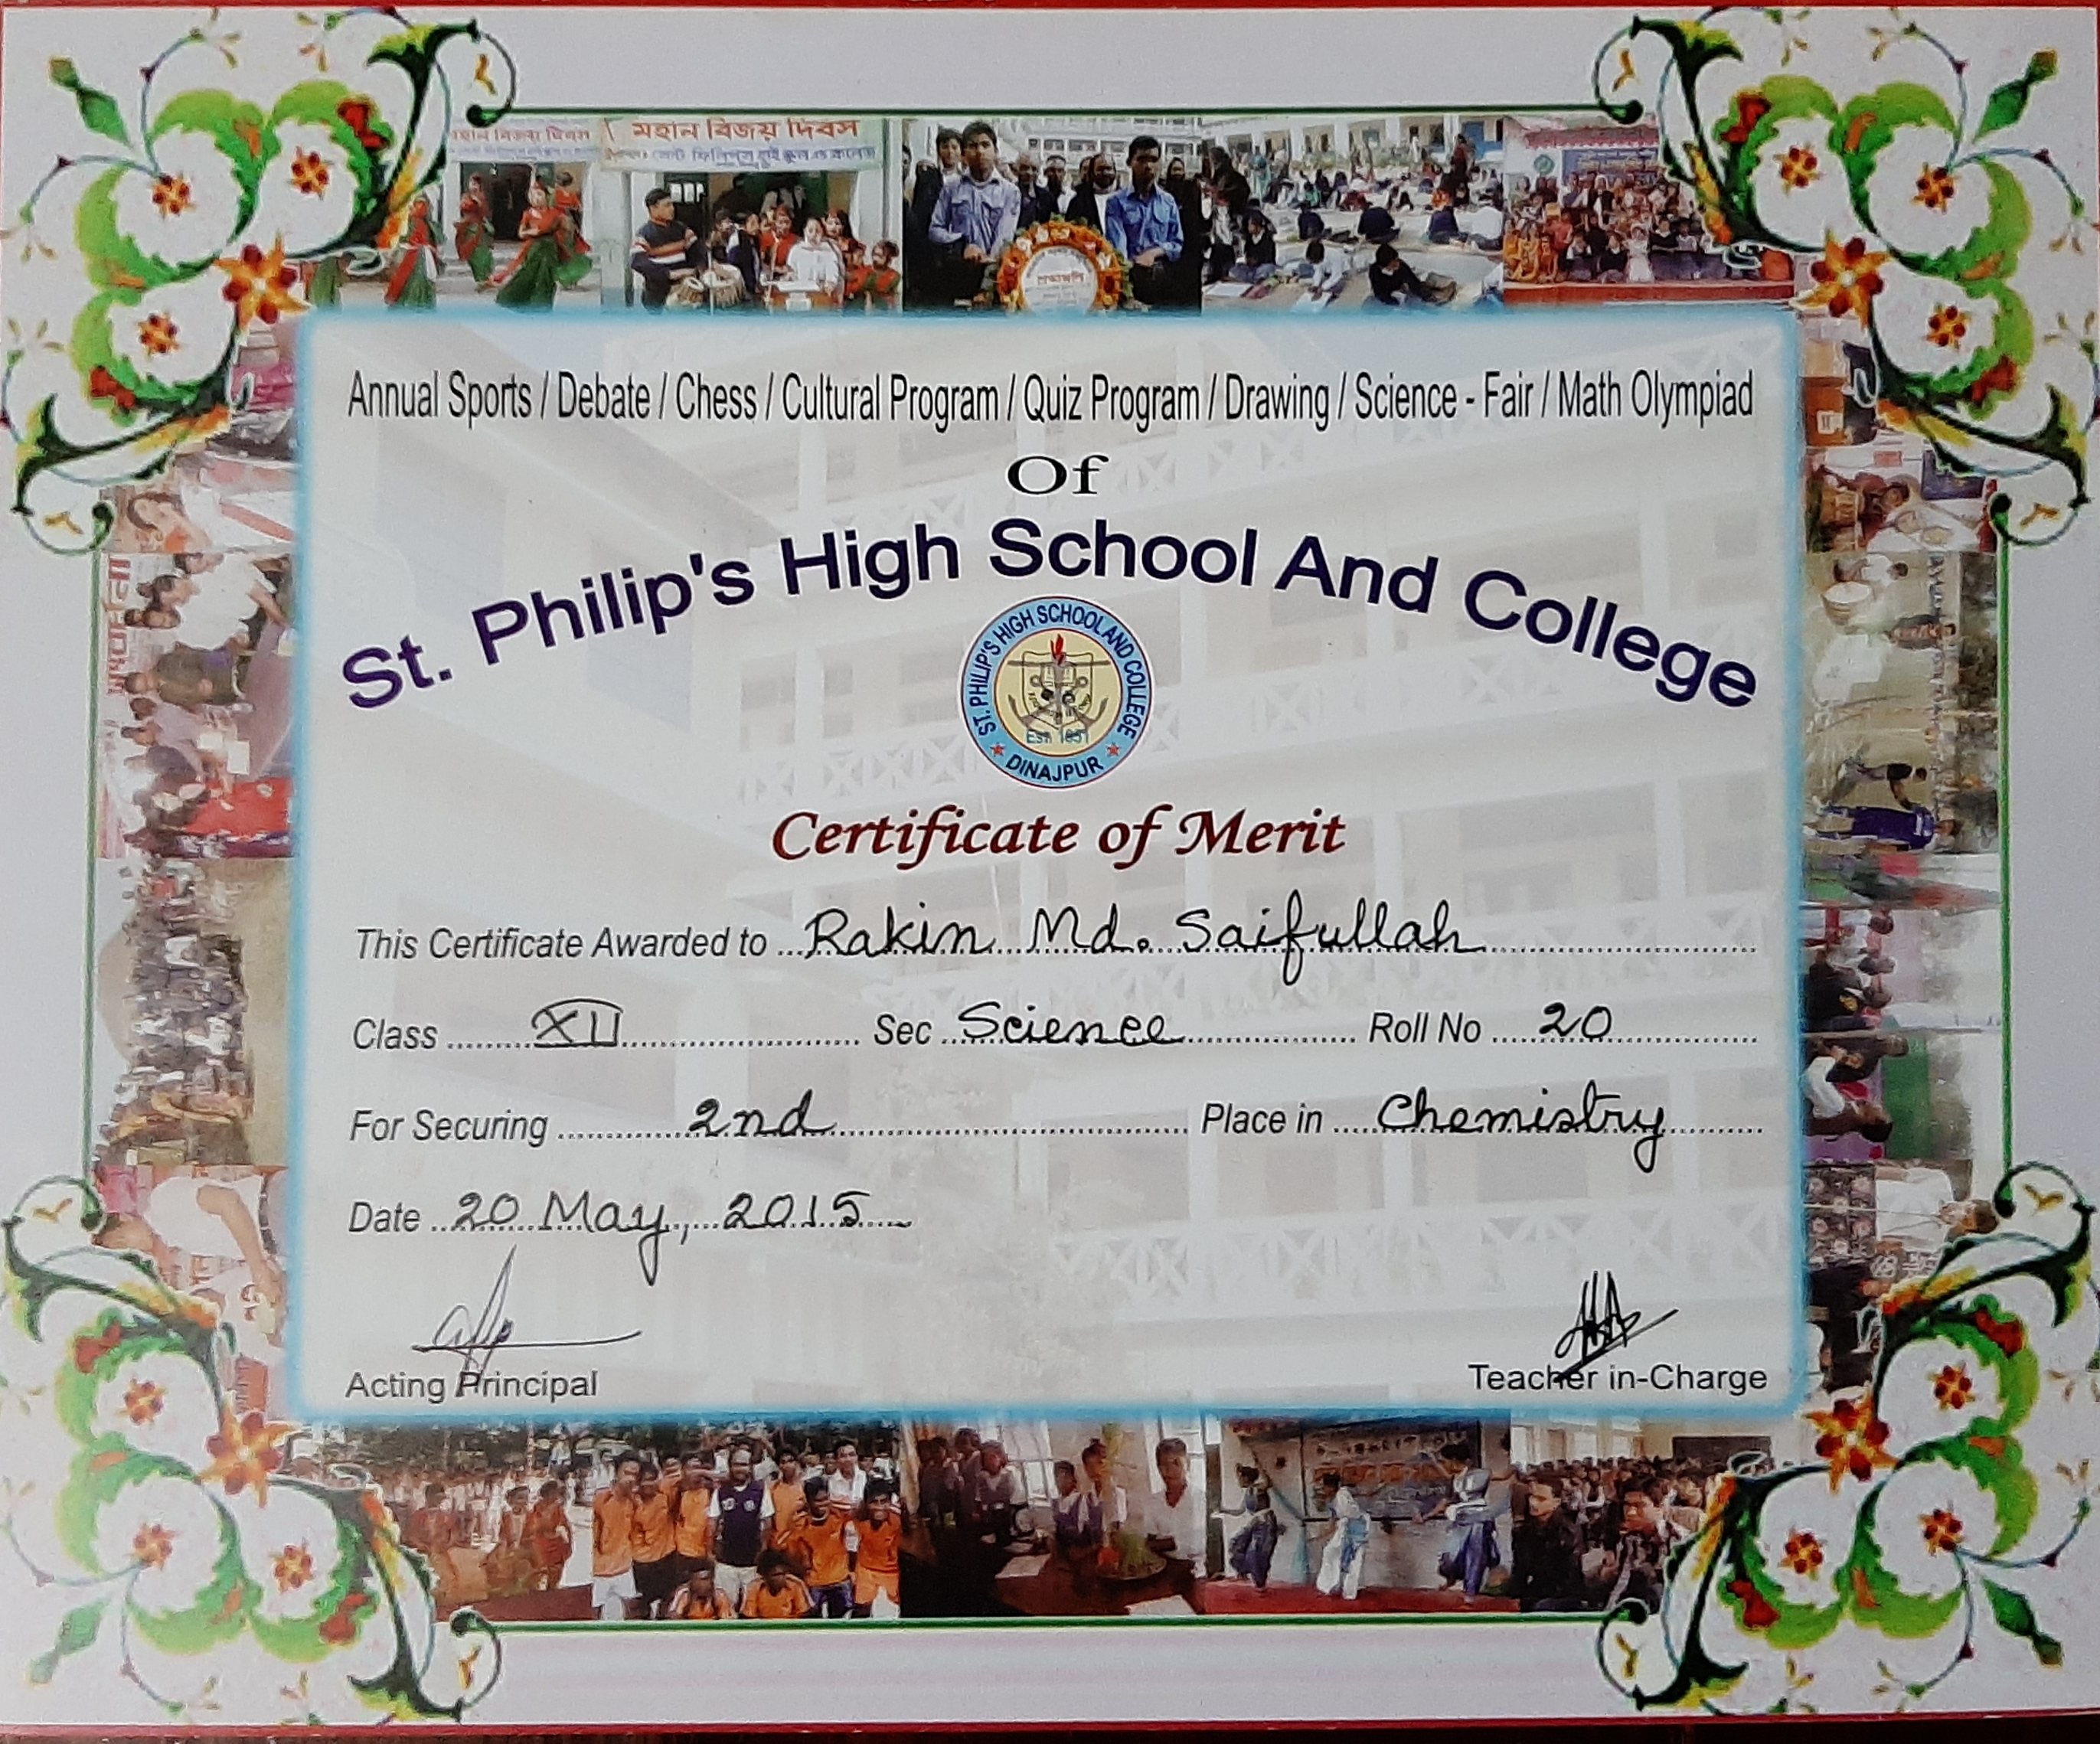 মহান বিজয় দিবস
মহান বিজয় দিবস
সেন্ট ফিলিপস্ হাই স্কুল এন্ড কলেজ
Annual Sports / Debate / Chess / Cultural Program / Quiz Program / Drawing / Science - Fair / Math Olympiad
Of
St. Philip's High School And College
ST. PHILIP'S HIGH SCHOOL AND COLLEGE
Estd 1951
DINAJPUR
Certificate of Merit
This Certificate Awarded to Rakin Md. Saifullah
Class XII Sec Science Roll No 20
For Securing 2nd Place in Chemistry
Date 20 May, 2015
Acting Principal Teacher in-Charge